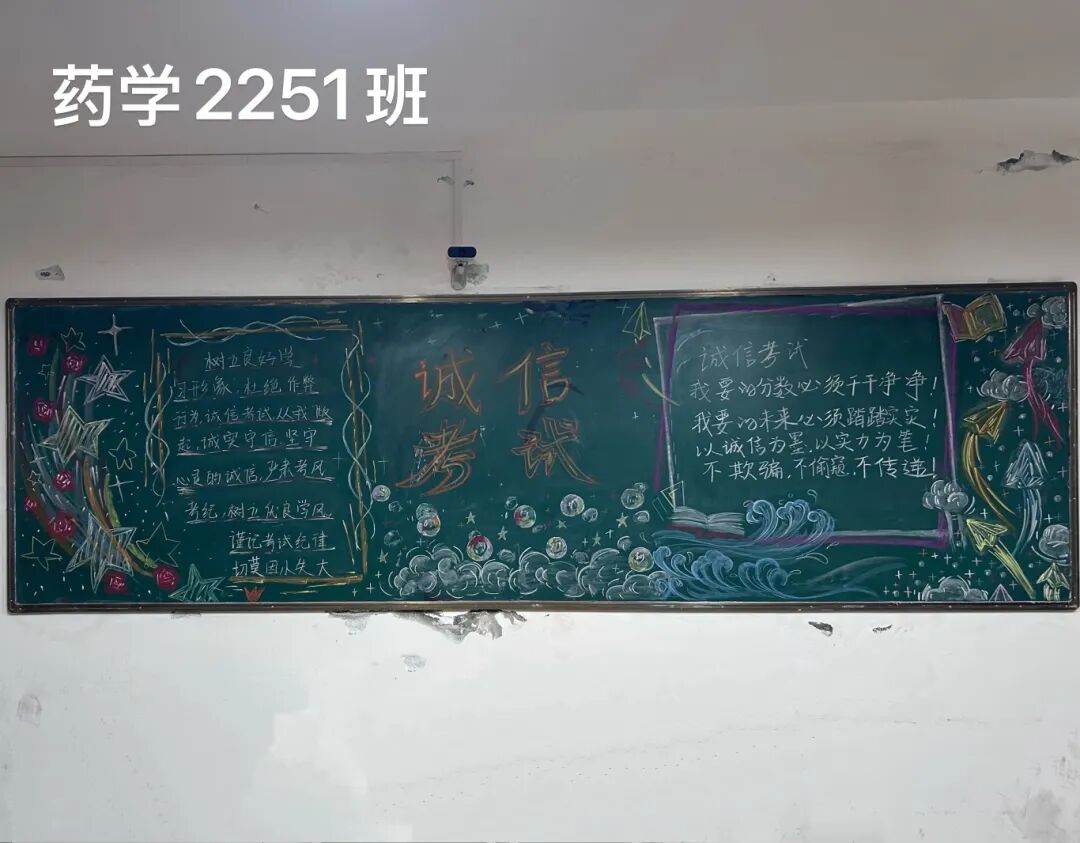 药学2251班
树立良好学
习形象,杜绝作弊
行为,诚信考试从我做
起,诚实守信,坚守
心良的诚信,严肃考风
考纪,树立优良学风
谨记考试纪律
切莫因小失大
诚信
考试
诚信考试
我要的分数必须干干净净!
我要的未来必须踏踏实实!
以诚信为墨,以实力为笔!
不欺骗,不偷窥,不传递!